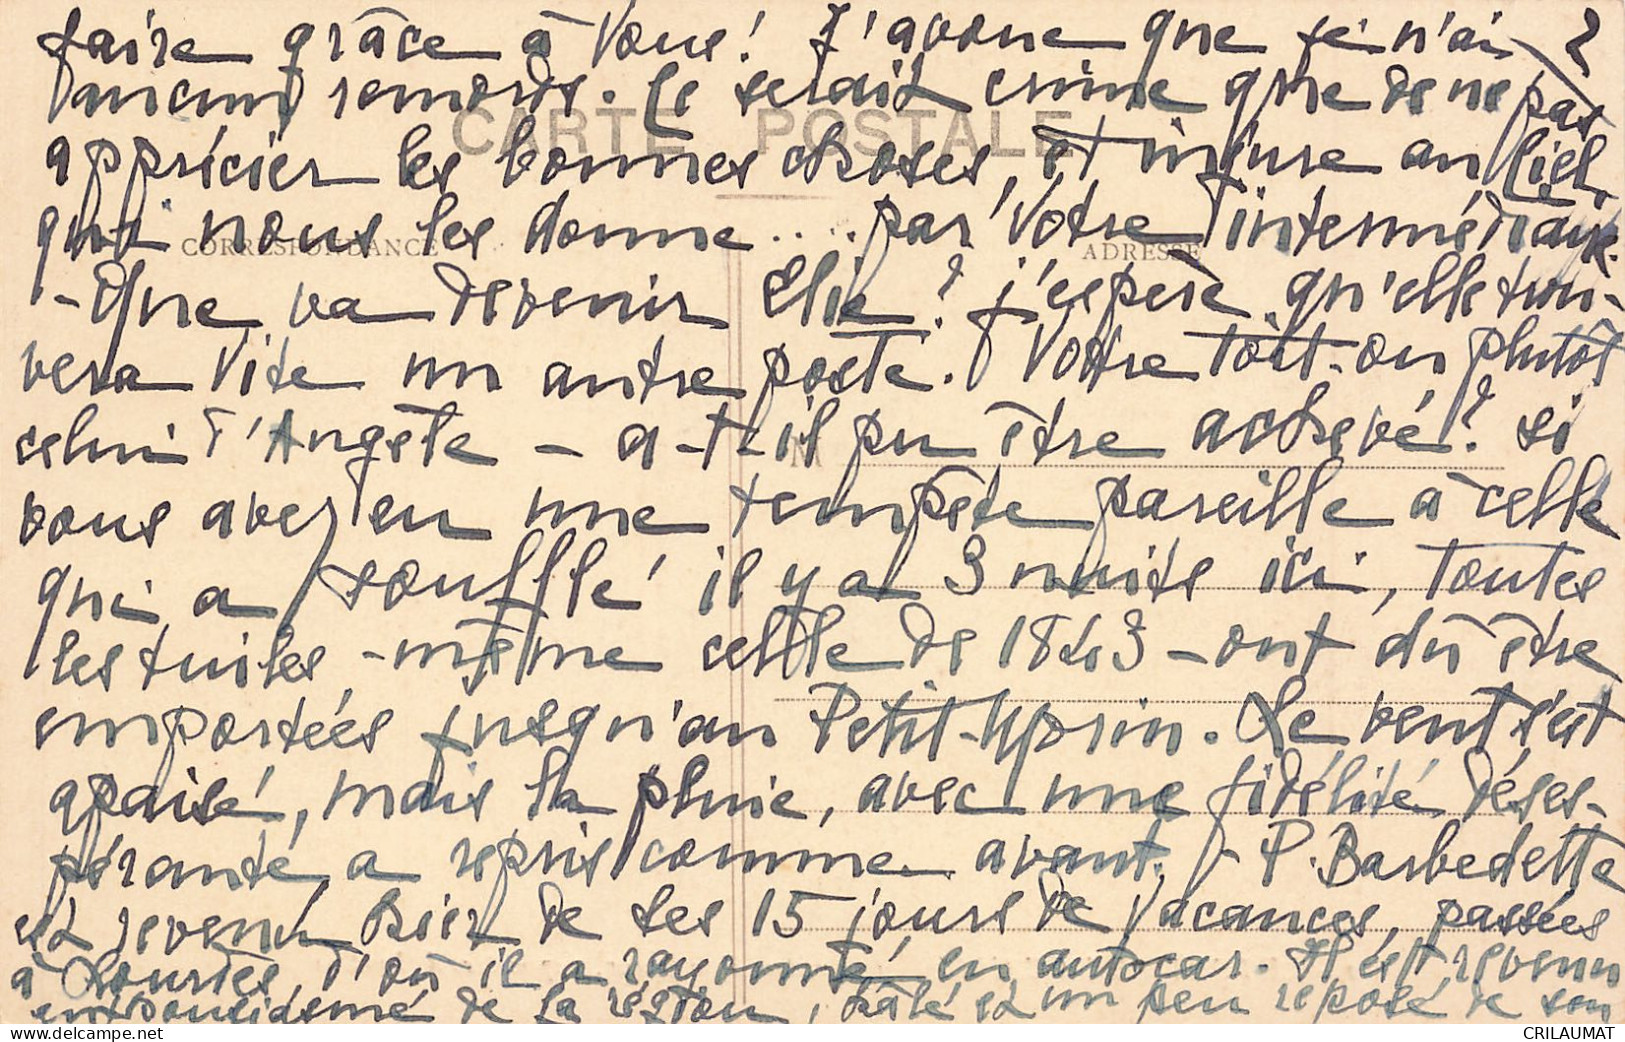 faire grâce à Vous ! J'avoue que je n'ai 2
aucun remords. Ce serait crime que de ne pas
CARTE POSTALE
apprécier les bonnes choses, et injure au Ciel
qui nous les donne.... par Votre intermédiaire.
CORRESPONDANCE ADRESSE
- Que va devenir Elie ? j'espère qu'elle trou-
vera Vite un autre poste. Votre toit - ou plutôt
celui d'Angèle - a-t-il pu être achevé ? si
vous avez eu une tempête pareille à celle
qui a soufflé il y a 3 nuits ici, toutes
les tuiles, - même celle de 1843 - ont dû être
emportées jusqu'au Petit-Morin. Le vent s'est
apaisé, mais la pluie, avec une fidélité déses-
pérante, a repris comme avant. - P. Barbedette
est revenu hier de ses 15 jours de Vacances, passées
à Lourdes, d'où il a rayonné en autocar. Il est revenu
enthousiasmé de la région, hâlé et un peu reposé de son
CRILAUMAT